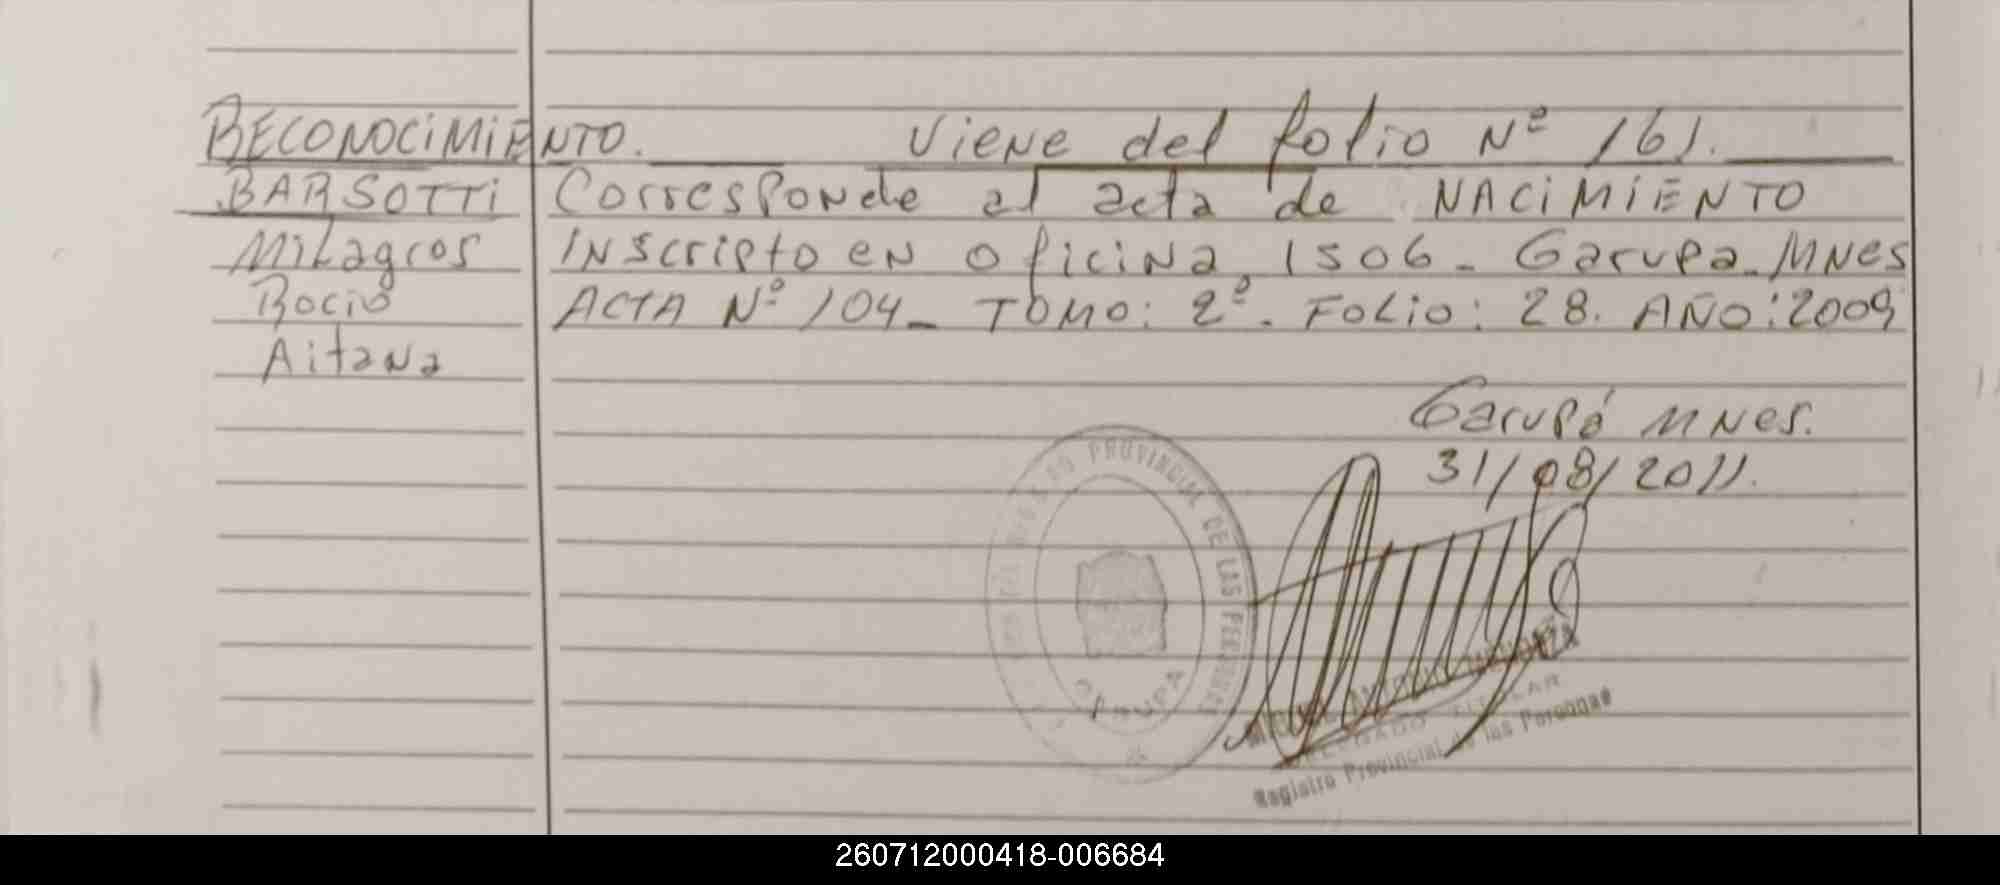 RECONOCIMIENTO. Viene del folio Nº 161.
BARSOTTI Corresponde al acta de NACIMIENTO
Milagros Inscripto en oficina 1506 - Garupa - MNes
Rocio ACTA Nº 104 - TOMO: 2º - FOLIO: 28. AÑO: 2009
Aitana
Garupá MNes.
31/08/2011.
PROVINCIAL DE LAS PERSONAS
GARUPA
Registro Provincial de las Personas
260712000418-006684